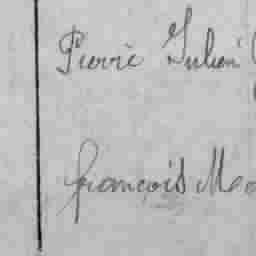 Pierre Julien
François